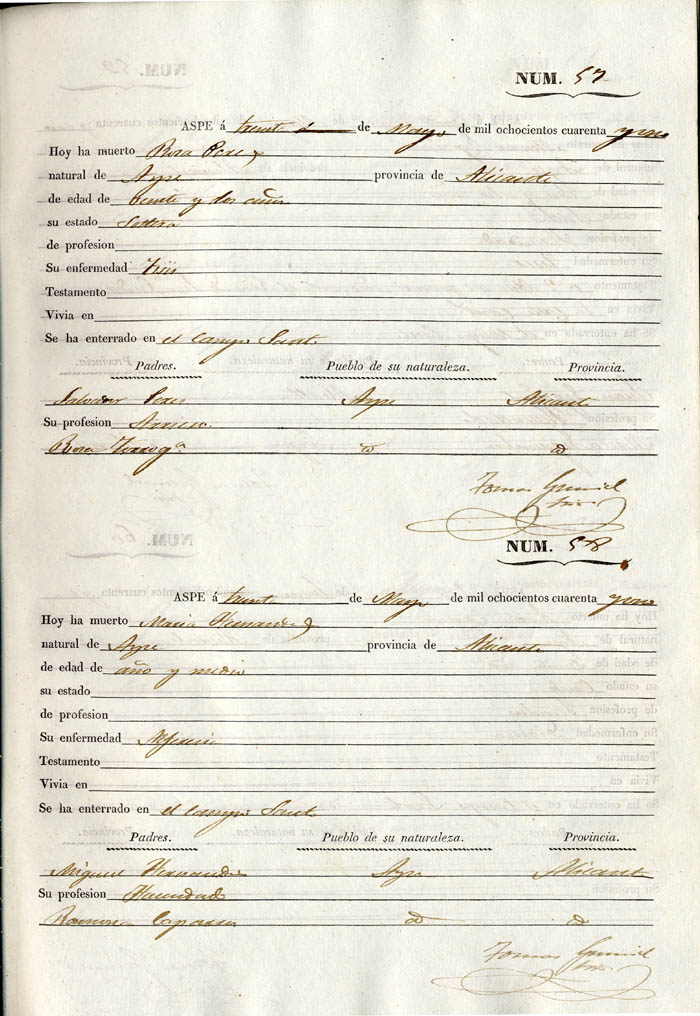 NUM. 57
ASPE á treinta de Mayo de mil ochocientos cuarenta y uno
Hoy ha muerto Rosa Peres
natural de Aspe provincia de Alicante
de edad de veinte y dos años
su estado Soltera
de profesion
Su enfermedad Tisis
Testamento
Vivia en
Se ha enterrado en el campo Santo
Padres. Pueblo de su naturaleza. Provincia.
Salvador Peres Aspe Alicante
Su profesion Arriero
Rosa
Tomas
NUM. 58
ASPE á treinta de Mayo de mil ochocientos cuarenta y uno
Hoy ha muerto Maria Hernandez
natural de Aspe provincia de Alicante
de edad de año y medio
su estado
de profesion
Su enfermedad
Testamento
Vivia en
Se ha enterrado en el campo Santo
Padres. Pueblo de su naturaleza. Provincia.
Miguel Hernandez Aspe Alicante
Su profesion Hacendado
Ramona
Tomas